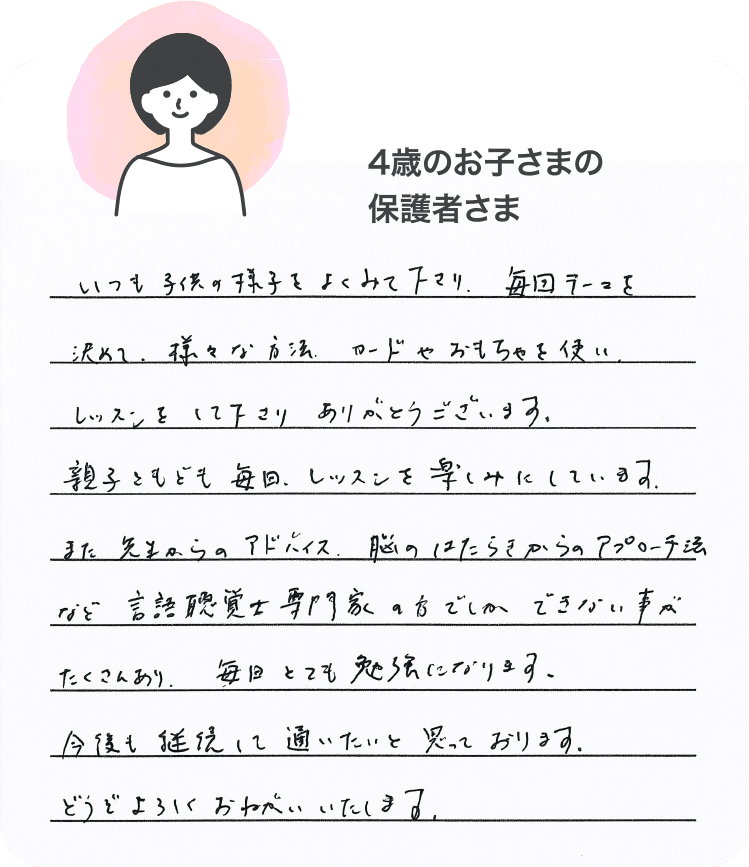 4歳のお子さまの
保護者さま
いつも子供の様子をよくみて下さり、毎回テーマを
決めて、様々な方法、カードやおもちゃを使い、
レッスンをして下さりありがとうございます。
親子ともども毎回、レッスンを楽しみにしています。
また先生からのアドバイス、脳のはたらきからのアプローチ法
など言語聴覚士専門家の方でしかできない事が
たくさんあり、毎回とても勉強になります。
今後も継続して通いたいと思っております。
どうぞよろしくおねがいいたします。